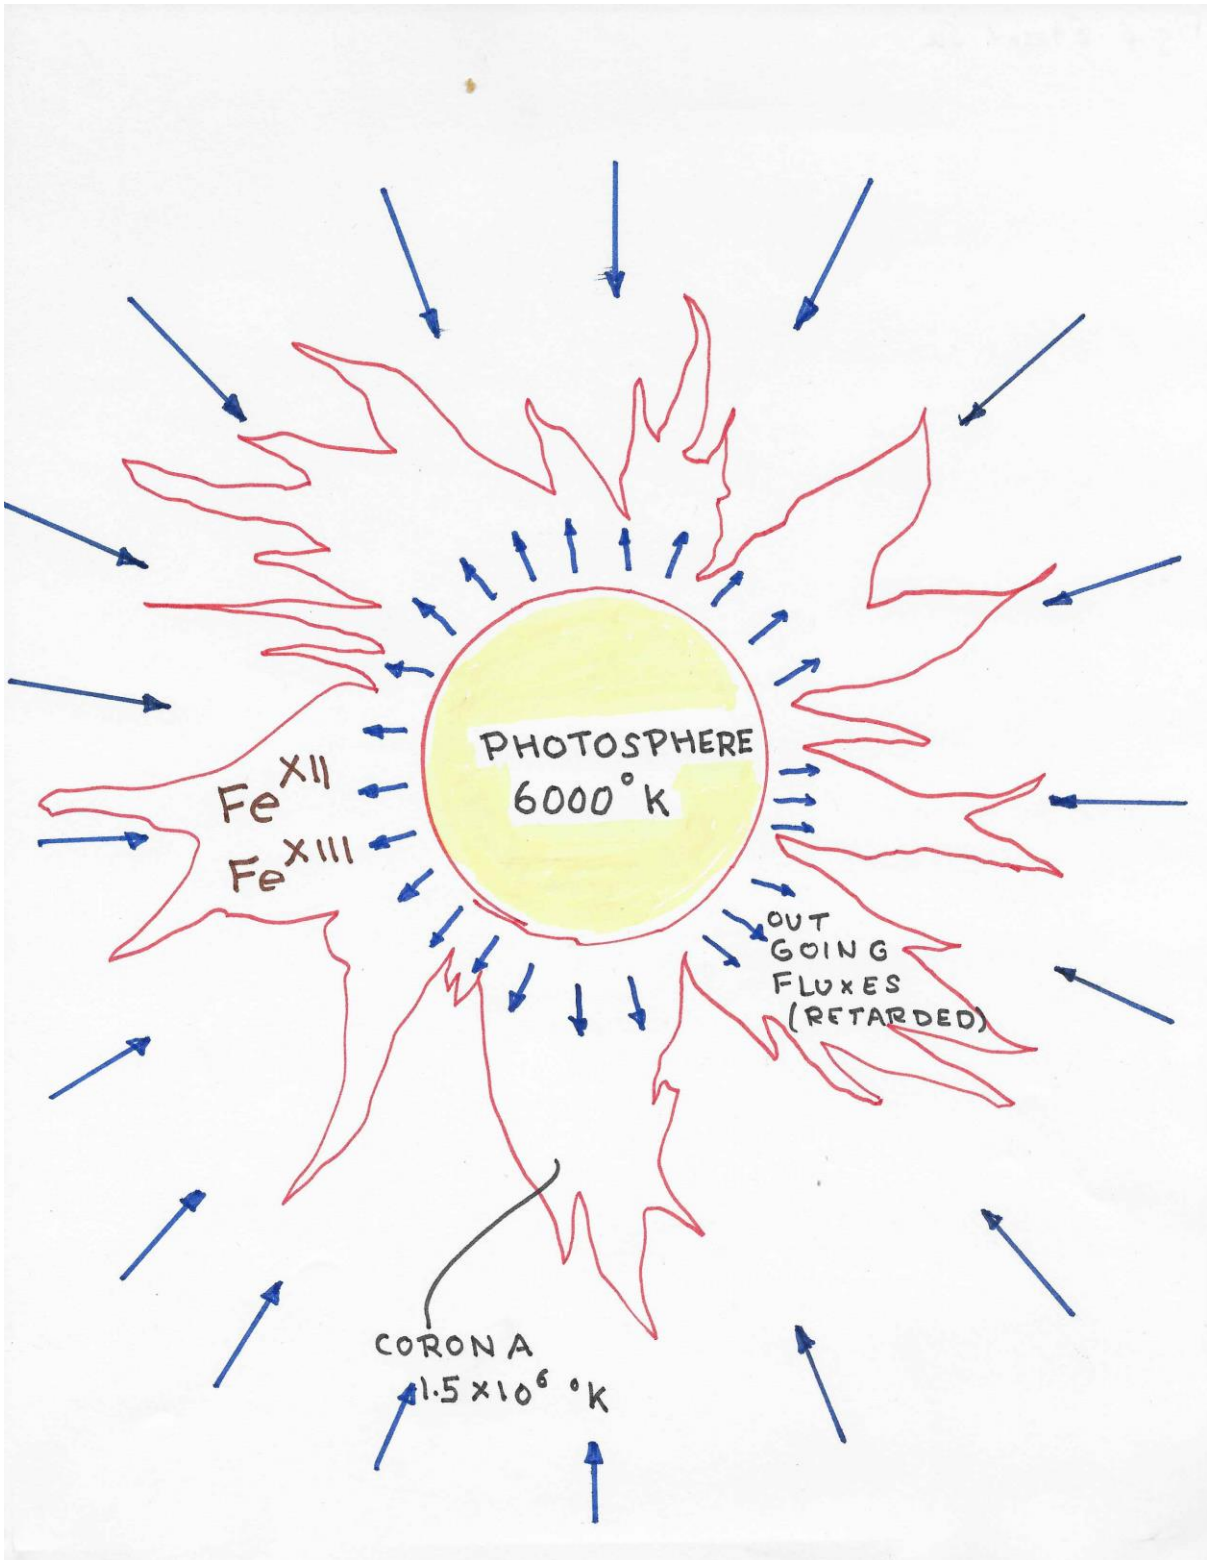 PHOTOSPHERE
6000°K
Fe^XII
Fe^XIII
OUT
GOING
FLUXES
(RETARDED)
CORONA
1.5×10⁶ °K